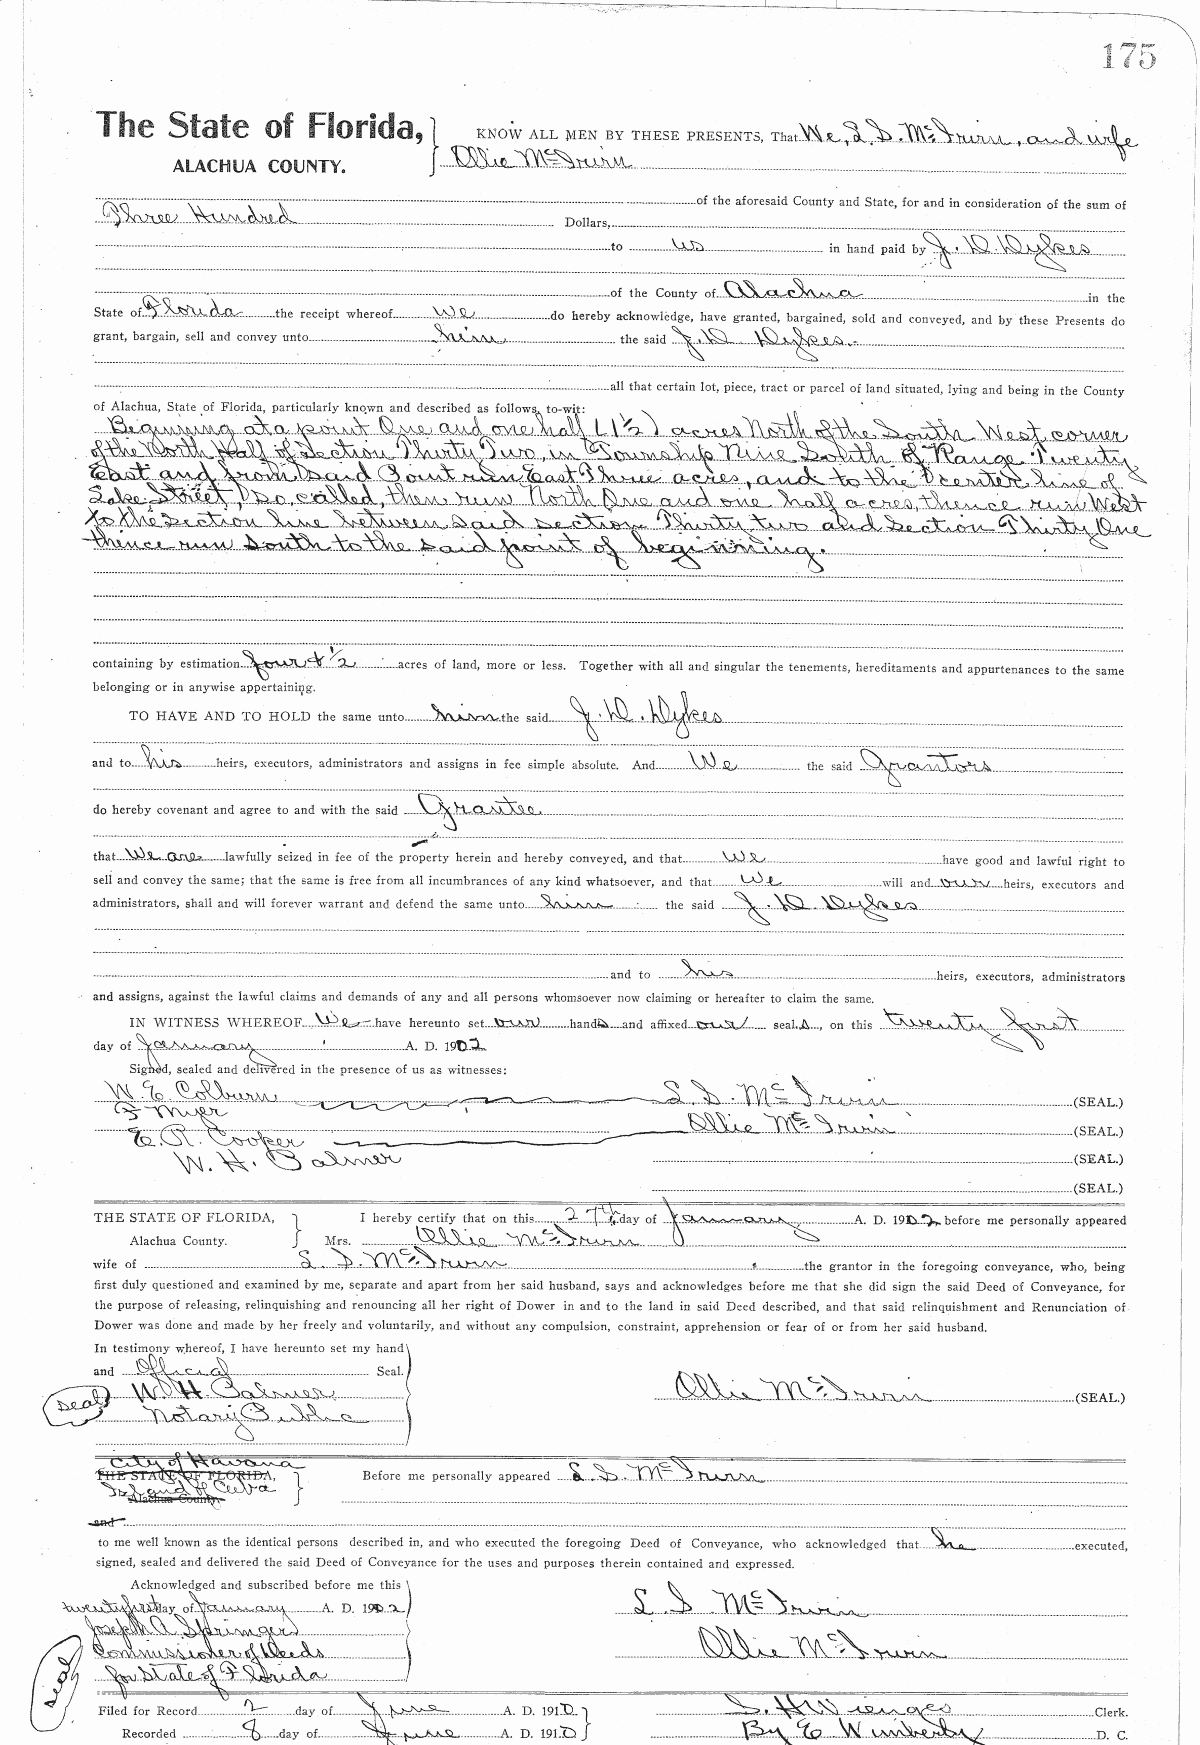 175
The State of Florida,
ALACHUA COUNTY.
KNOW ALL MEN BY THESE PRESENTS, That We, L. S. McIrvin, and wife
Ollie McIrvin
of the aforesaid County and State, for and in consideration of the sum of
Three Hundred Dollars,
to us in hand paid by J. D. Dykes
of the County of Alachua in the
State of Florida the receipt whereof we do hereby acknowledge, have granted, bargained, sold and conveyed, and by these Presents do
grant, bargain, sell and convey unto him the said J. D. Dykes.
all that certain lot, piece, tract or parcel of land situated, lying and being in the County
of Alachua, State of Florida, particularly known and described as follows, to-wit:
Beginning at a point One and one half (1½) acres North of the South West corner
of the North Half of Section Thirty Two, in Township Nine South of Range Twenty
East and from said Point run East Three acres, and to the center line of
Lake Street, so called, then run North One and one half acres, thence run West
to the section line between said section Thirty two and Section Thirty One
thence run south to the said point of beginning.
containing by estimation four & ½ acres of land, more or less. Together with all and singular the tenements, hereditaments and appurtenances to the same
belonging or in anywise appertaining.
TO HAVE AND TO HOLD the same unto him the said J. D. Dykes
and to his heirs, executors, administrators and assigns in fee simple absolute. And We the said Grantors
do hereby covenant and agree to and with the said Grantee
that We are lawfully seized in fee of the property herein and hereby conveyed, and that we have good and lawful right to
sell and convey the same; that the same is free from all incumbrances of any kind whatsoever, and that we will and our heirs, executors and
administrators, shall and will forever warrant and defend the same unto him the said J. D. Dykes
and to his heirs, executors, administrators
and assigns, against the lawful claims and demands of any and all persons whomsoever now claiming or hereafter to claim the same.
IN WITNESS WHEREOF We have hereunto set our hands and affixed our seals, on this twenty first
day of January A. D. 1902
Signed, sealed and delivered in the presence of us as witnesses:
W. E. Colburn L. S. McIrvin (SEAL.)
F Myer
E. R. Cooper Ollie McIrvin (SEAL.)
W. H. Palmer (SEAL.)
(SEAL.)
THE STATE OF FLORIDA, I hereby certify that on this 27th day of January A. D. 1902 before me personally appeared
Alachua County. Mrs. Ollie McIrvin
wife of L. S. McIrvin the grantor in the foregoing conveyance, who, being
first duly questioned and examined by me, separate and apart from her said husband, says and acknowledges before me that she did sign the said Deed of Conveyance, for
the purpose of releasing, relinquishing and renouncing all her right of Dower in and to the land in said Deed described, and that said relinquishment and Renunciation of
Dower was done and made by her freely and voluntarily, and without any compulsion, constraint, apprehension or fear of or from her said husband.
In testimony whereof, I have hereunto set my hand
and Official Seal.
seal W. H. Palmer Ollie McIrvin (SEAL.)
Notary Public
City of Havana
THE STATE OF FLORIDA, Before me personally appeared L. S. McIrvin
Island of Cuba
Alachua County.
and
to me well known as the identical persons described in, and who executed the foregoing Deed of Conveyance, who acknowledged that he executed,
signed, sealed and delivered the said Deed of Conveyance for the uses and purposes therein contained and expressed.
Acknowledged and subscribed before me this
twenty first day of January A. D. 1902 L S McIrvin
Joseph A. Springer
Commissioner of Deeds Ollie McIrvin
seal for State of Florida
Filed for Record 2 day of June A. D. 1910 S. H Wienges Clerk.
Recorded 8 day of June A. D. 1910 By E Wimberly D. C.